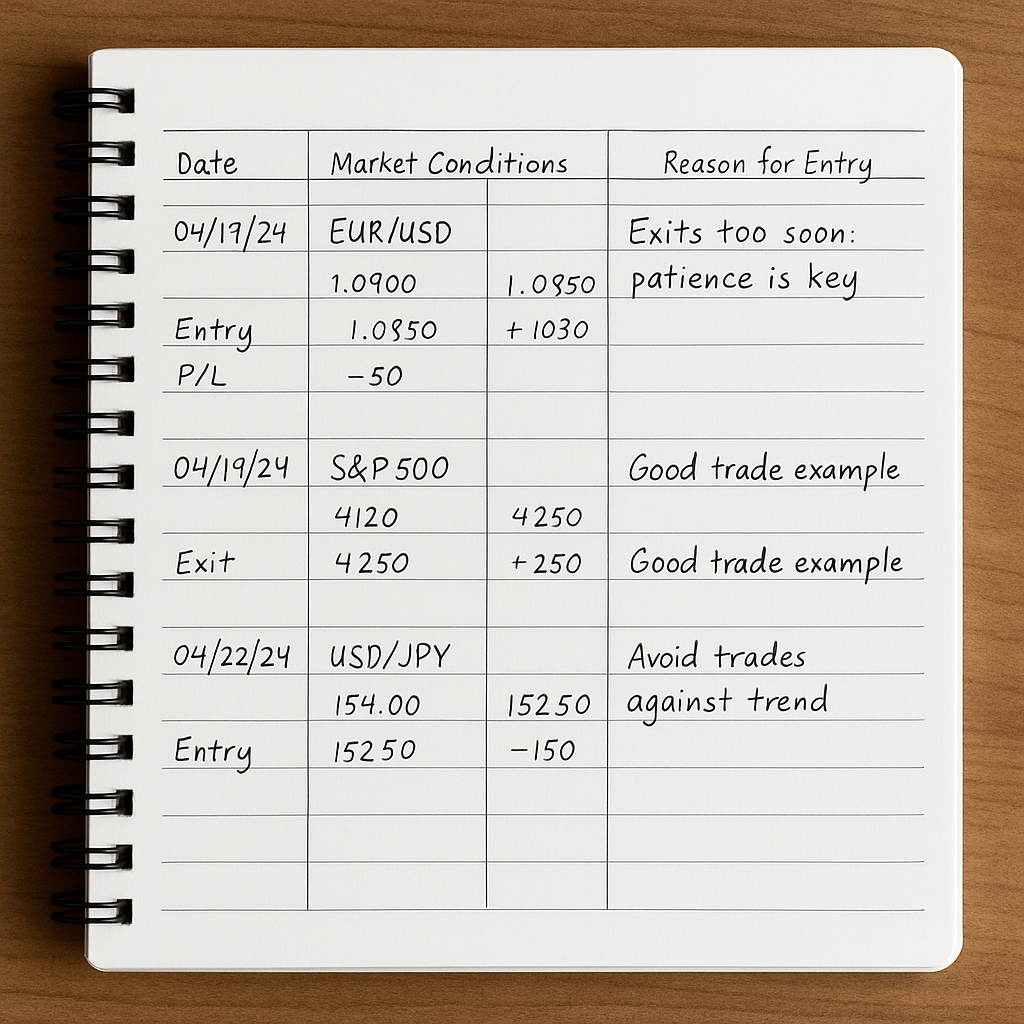 Date Market Conditions Reason for Entry
04/19/24 EUR/USD Exits too soon:
1.0900 1.0850 patience is key
Entry 1.0850 +1030
P/L -50
04/19/24 S&P 500 Good trade example
4120 4250
Exit 4250 +250 Good trade example
04/22/24 USD/JPY Avoid trades
154.00 15250 against trend
Entry 15250 -150